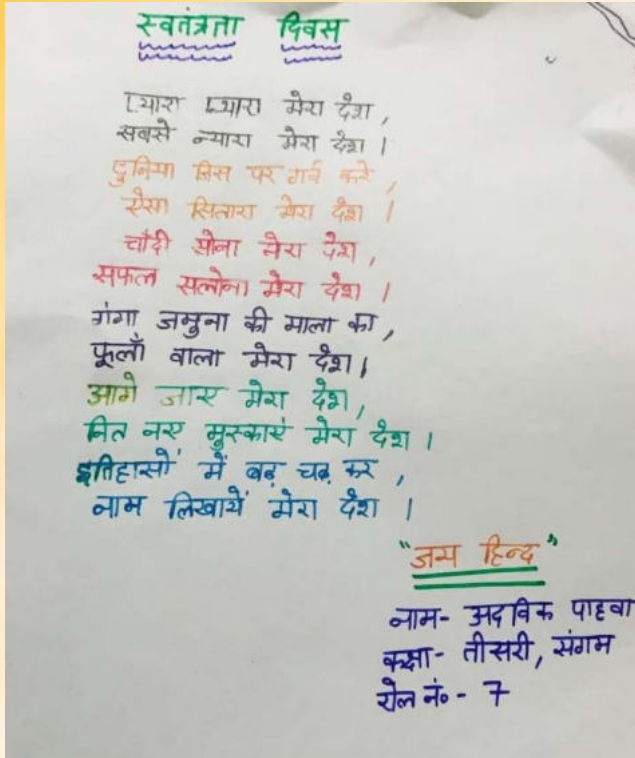 स्वतंत्रता दिवस
प्यारा प्यारा मेरा देश,
सबसे न्यारा मेरा देश।
दुनिया जिस पर गर्व करे,
ऐसा सितारा मेरा देश।
चाँदी सोना मेरा देश,
सफल सलोना मेरा देश।
गंगा जमुना की माला का,
फूलों वाला मेरा देश।
आगे जाए मेरा देश,
नित नए मुस्काएं मेरा देश।
इतिहासों में बढ़ चढ़ कर,
नाम लिखायें मेरा देश।
"जय हिन्द"
नाम- अदविक पाहवा
कक्षा- तीसरी, संगम
रोल नं॰ - 7